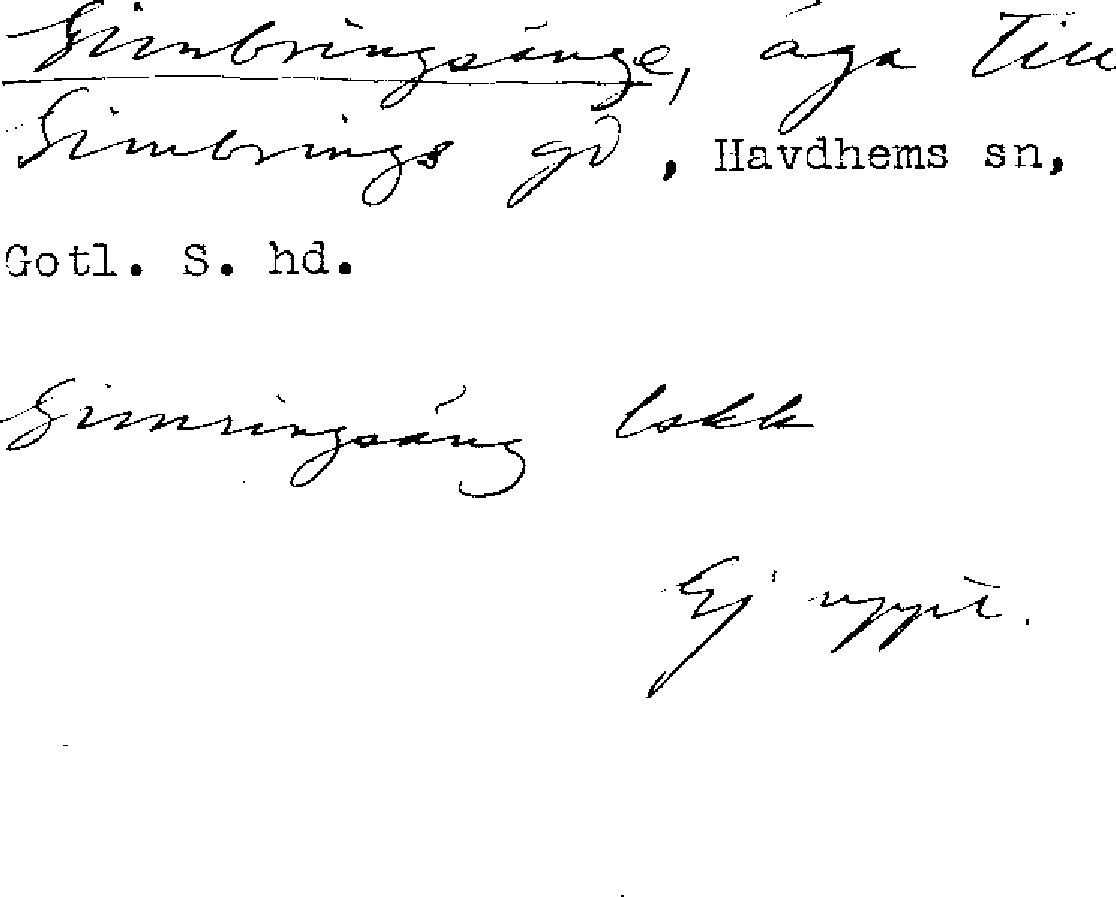 Simbringsänge, äga till
Simbrings gd, Havdhems sn,
Gotl. S. hd.
Simringsäng lokk
Ej uppt.